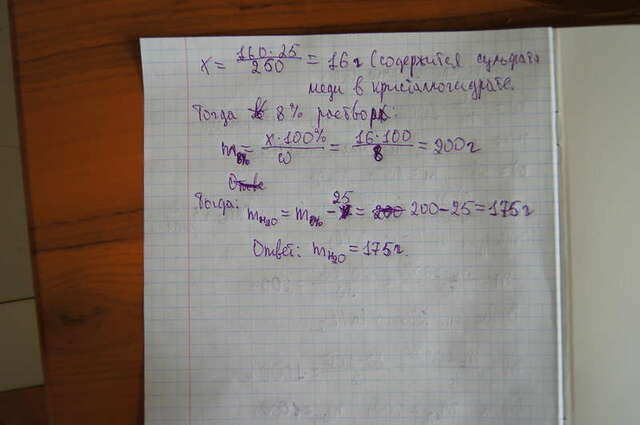 x = 160·25 / 250 = 16 г (содержится сульфата
меди в кристаллогидрате.
Тогда в 8% раствора:
m8% = x·100% / ω = 16·100 / 8 = 200 г
Тогда: mH2O = m8% - 25 = 200 - 25 = 175 г
Ответ: mH2O = 175 г.